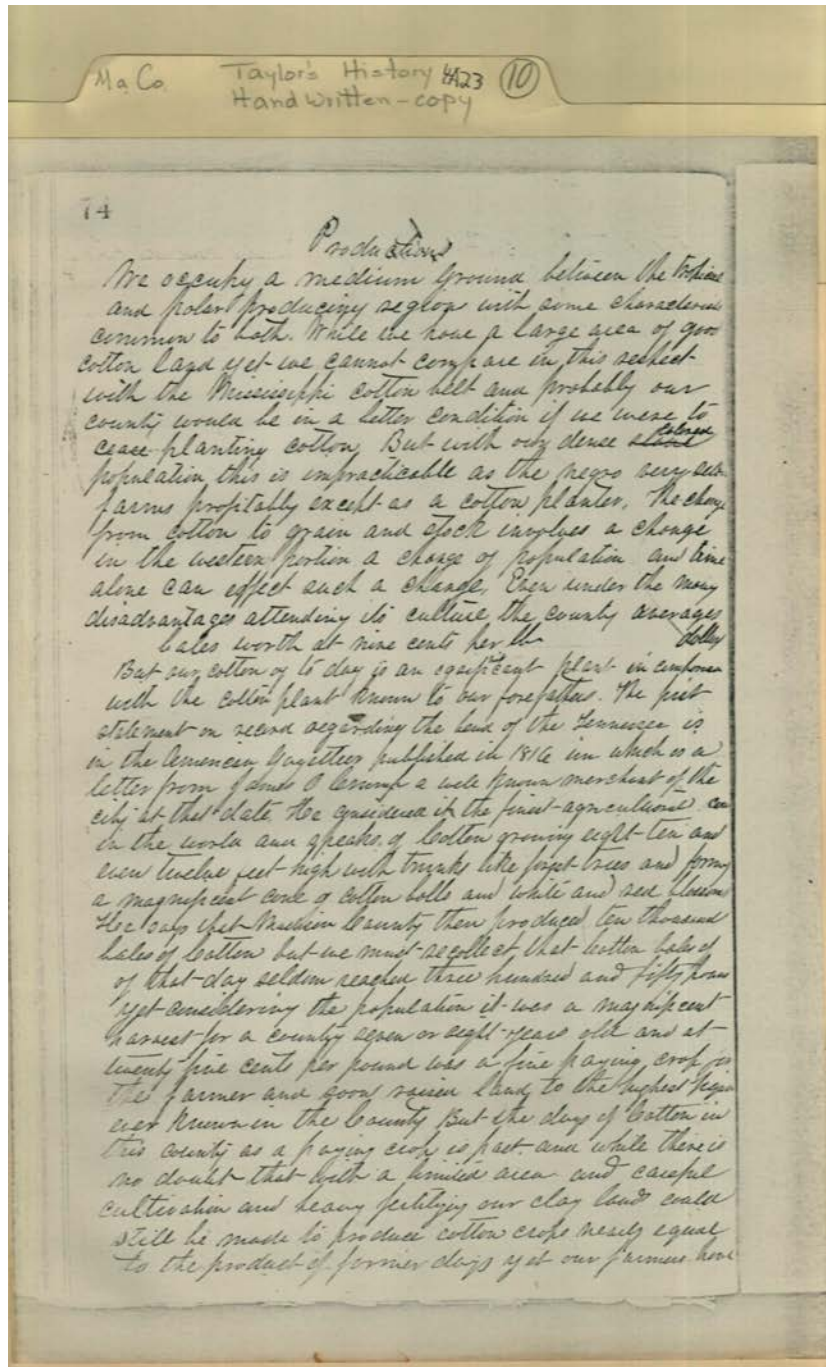 Ma Co. Taylor's History 4A23 10
Hand Written - copy
74
Productions
We occupy a medium ground between the tropical
and polar producing region with some characteristics
common to both. While we have a large area of good
cotton land yet we cannot compare in this respect
with the Mississippi cotton belt and probably our
county would be in a better condition if we were to
cease planting cotton. But with our dense colored
population, this is impracticable as the negro very seldom
farms profitably except as a cotton planter. The change
from cotton to grain and stock involves a change
in the western portion a change of population and time
alone can effect such a change. Even under the many
disadvantages attending its culture, the county averages
bales worth at nine cents per lb dollars
But our cotton of to day is an plant in
with the cotton plant known to our forefathers. The first
statement on record regarding the bend of the Tennessee is
in the American published in 1816 in which is a
letter from James a well known merchant of the
city at that date. He considered it the finest agricultural
in the world and speaks of Cotton growing eight ten and
even twelve feet high with trunks like forest trees and forming
a magnificent cone of cotton bolls and white and red blossoms
He says that Madison County then produced ten thousand
bales of Cotton but we must recollect that Cotton bales of
of that day seldom reached three hundred and fifty pounds
yet considering the population it was a magnificent
harvest for a county seven or eight years old and at
twenty five cents per pound was a fine paying crop for
the farmer and soon raised land to the highest
ever known in the County But the days of Cotton in
this county as a paying crop is past. and while there is
no doubt that with a limited area and careful
cultivation and heavy fertilizing our clay lands could
still be made to produce cotton crops nearly equal
to the product of former days yet our farmers have